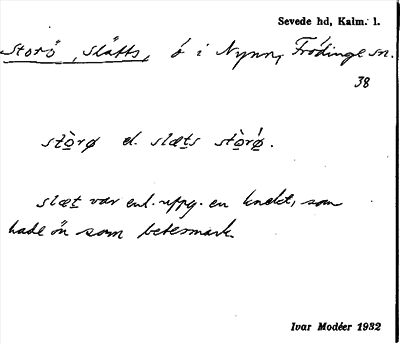 Sevede hd, Kalm. l.
Storö, Slätts, ö i Nynn, Frödinge sn.
38
stò̱rø el. slæt̲s stò̱rǿ̱.
slæt̲ var enl. uppg. en knekt, som
hade ön som betesmark.
Ivar Modéer 1932